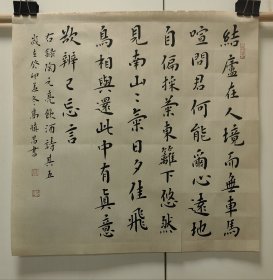 結廬在人境而無車馬
喧問君何能爾心遠地
自偏採菊東籬下悠然
見南山山氣日夕佳飛
鳥相與還此中有真意
欲辨已忘言
右錄陶元亮飲酒詩其五
歲在癸卯孟冬